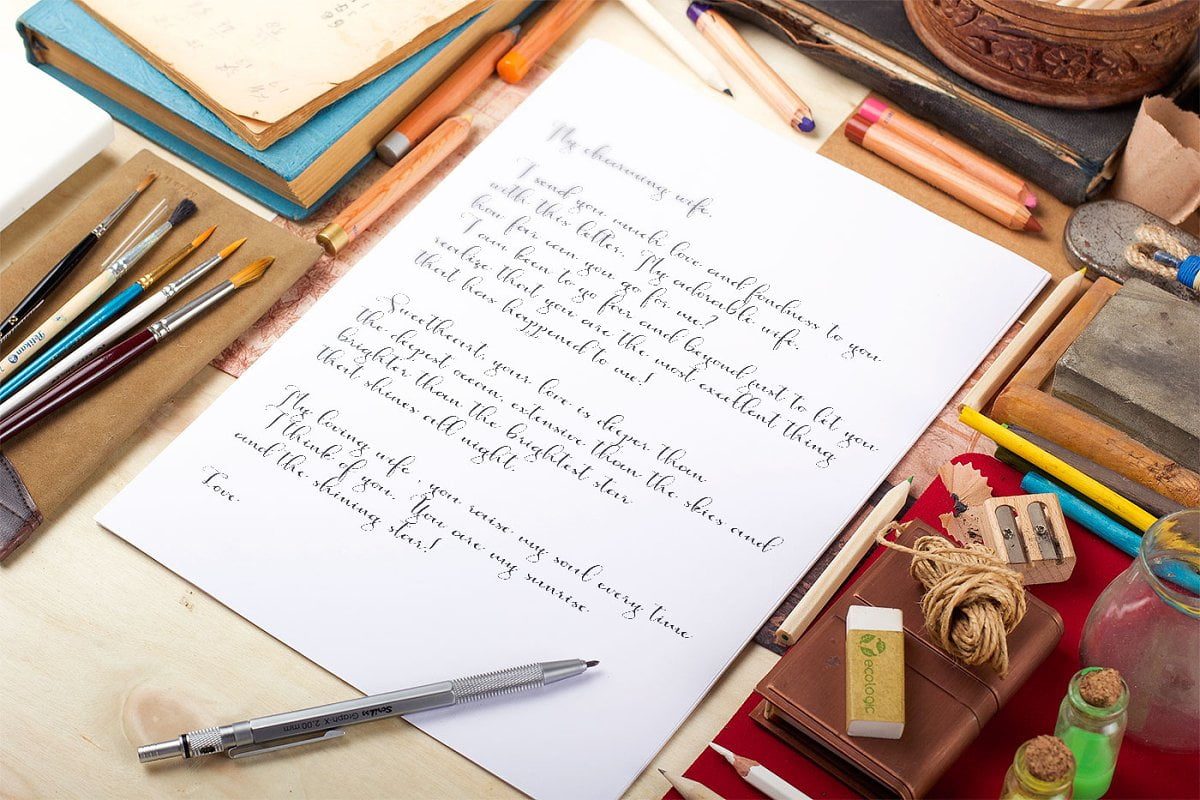 My charming wife,
I send you much love and fondness to you
with this letter. My adorable wife,
how far can you go for me?
I am been to go far and beyond just to let you
realize that you are the most excellent thing
that has happened to me!
Sweetheart, your love is deeper than
the deepest ocean, extensive than the skies and
brighter than the brightest star
that shines all night.
My loving wife , you raise my soul every time
I think of you. You are my sunrise
and the shining star!
Love.
Pelikan
Scrikss Graph-X 2.00 mm
ecologic